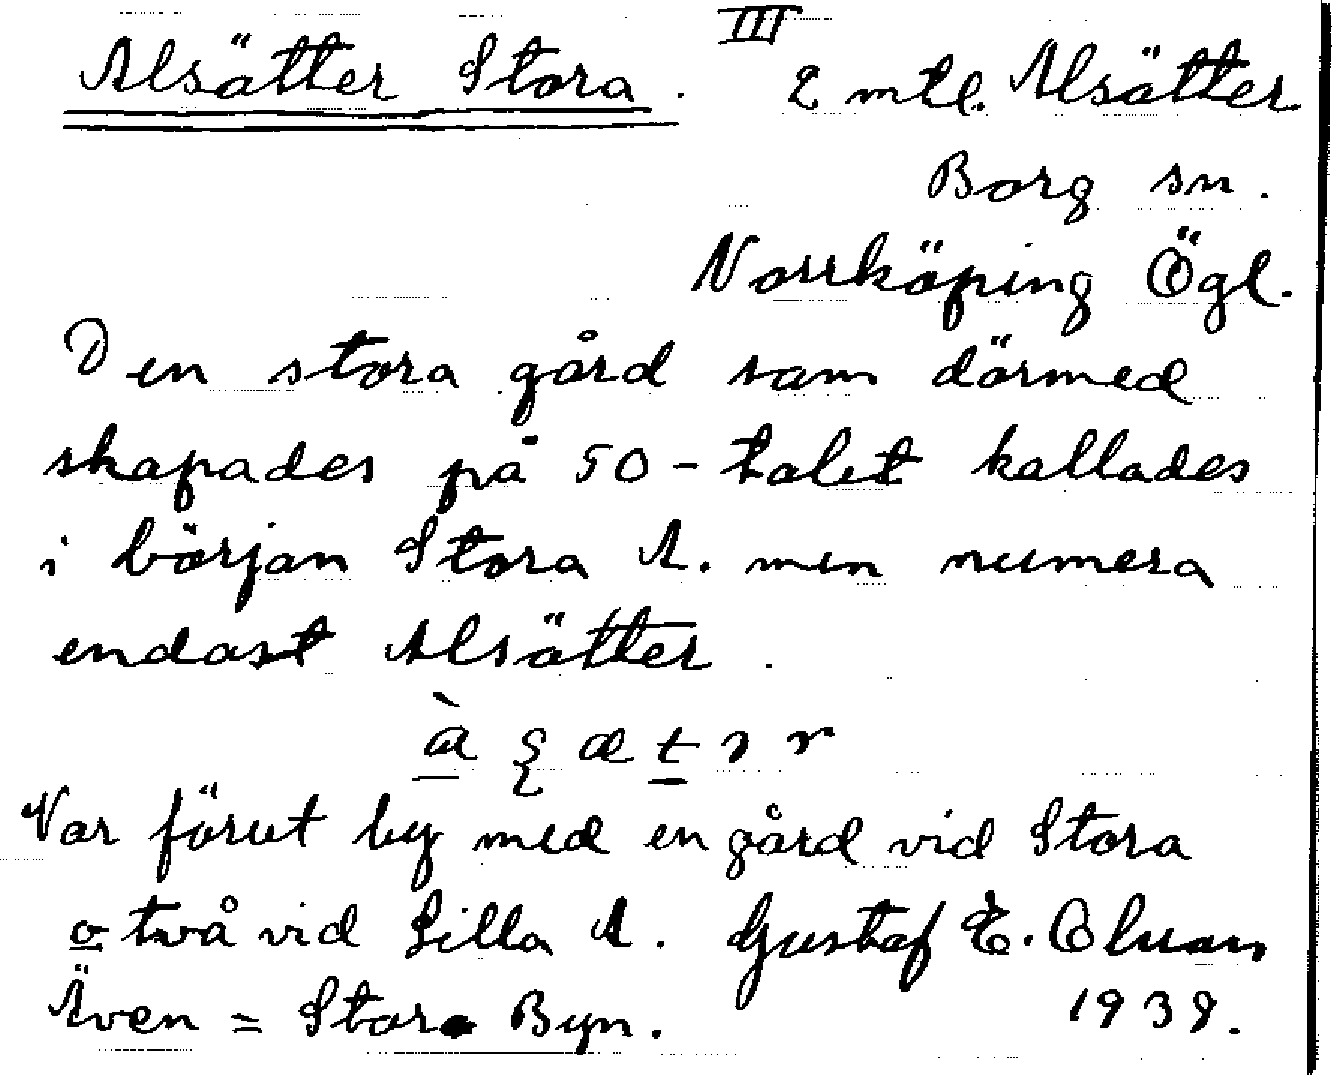 III
Alsätter Stora. 2 mtl. Alsätter
Borg sn.
Norrköping Ögl.
Den stora gård som därmed
skapades på 50-talet kallades
i början Stora A. men numera
endast Alsätter.
Var förut by med en gård vid Stora
o två vid Lilla A. Gustaf E.
Även = Stora Byn. 1939.